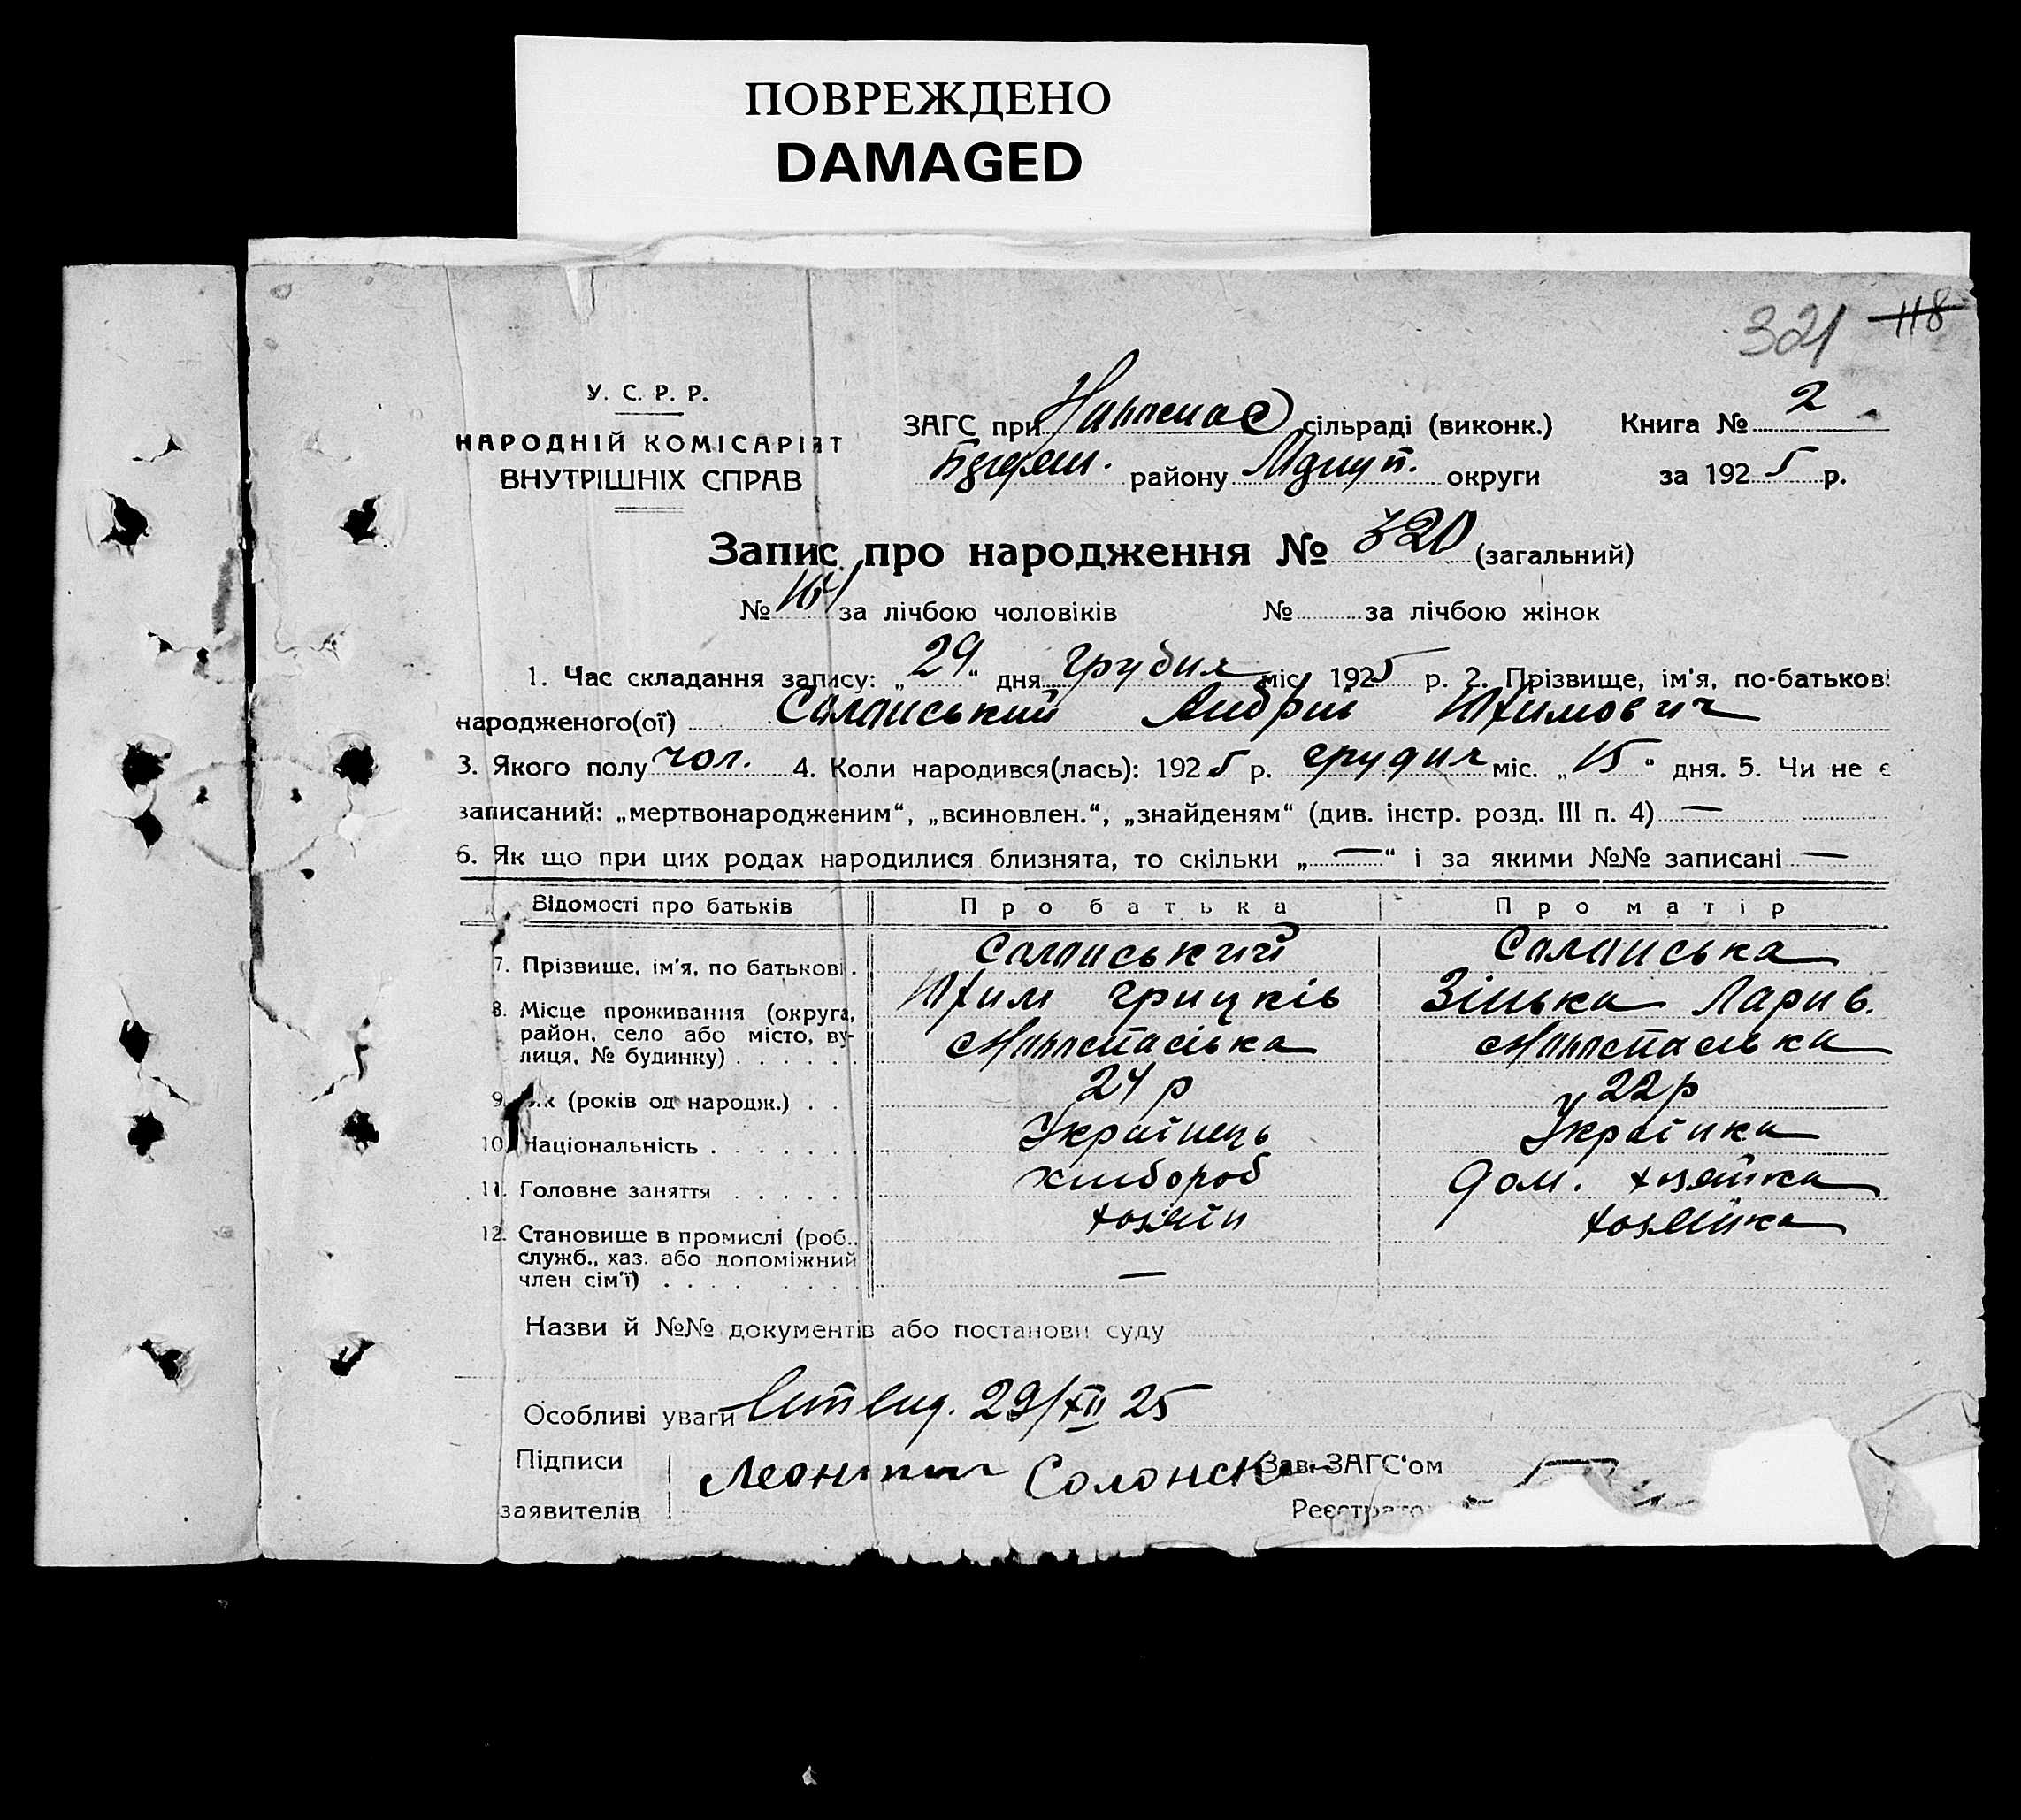 ПОВРЕЖДЕНО
DAMAGED
321 118
У. С. Р. Р.
НАРОДНІЙ КОМІСАРІЯТ
ВНУТРІШНІХ СПРАВ
ЗАГС при сільраді (виконк.) Книга № 2
району округи за 1925 р.
Запис про народження № 320 (загальний)
№ 164 за лічбою чоловіків № за лічбою жінок
1. Час складання запису: „29“ дня грудня міс. 1925 р. 2. Прізвище, ім'я, по-батькові
народженого(ої) Солонський Андрій Юхимович
3. Якого полу чол. 4. Коли народився(лась): 1925 р. грудня міс. „15“ дня. 5. Чи не є
записаний: „мертвонародженим“, „всиновлен.“, „знайденям“ (див. інстр. розд. III п. 4) —
6. Як що при цих родах народилися близнята, то скільки „—“ і за якими №№ записані —
Відомості про батьків Про батька Про матір
7. Прізвище, ім'я, по батькові . Солонський Солонська
Юхим Грицків Зінька Ларив.
8. Місце проживання (округа, район, село або місто, вулиця, № будинку) . . . . . .
9. (років од народж.) . . 24 р 22 р
10. Національність . . . . . . . Українець Українка
11. Головне заняття . . . . . . хлібороб дом. хозяйка
12. Становище в промислі (роб., служб., хаз. або допоміжний член сім'ї) . . . . . . . . хозяїн хозяйка
—
Назви й №№ документів або постанови суду
Особливі уваги 29/XII 25
Підписи Солонск Зав. ЗАГС'ом
заявителів Реєстрато